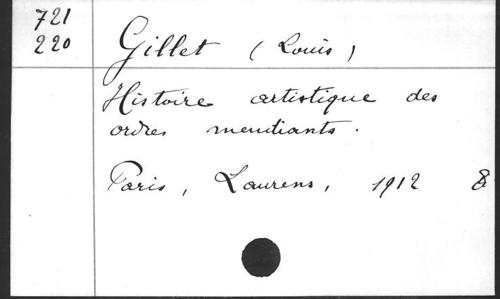 721
220
Gillet (Louis)
Histoire artistique des
ordres mendiants.
Paris, Laurens, 1912 8